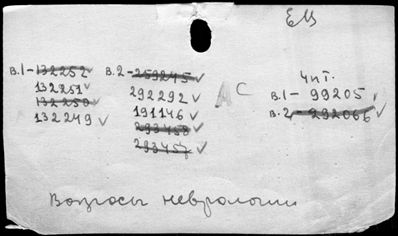 ЕМ
в.1 - 132252
132251
132250
132249
в.2 - 259245
292292
191146
293458
293457
АС
Чит.
в.1 - 99205
в.2 - 292066
Вопросы неврологии